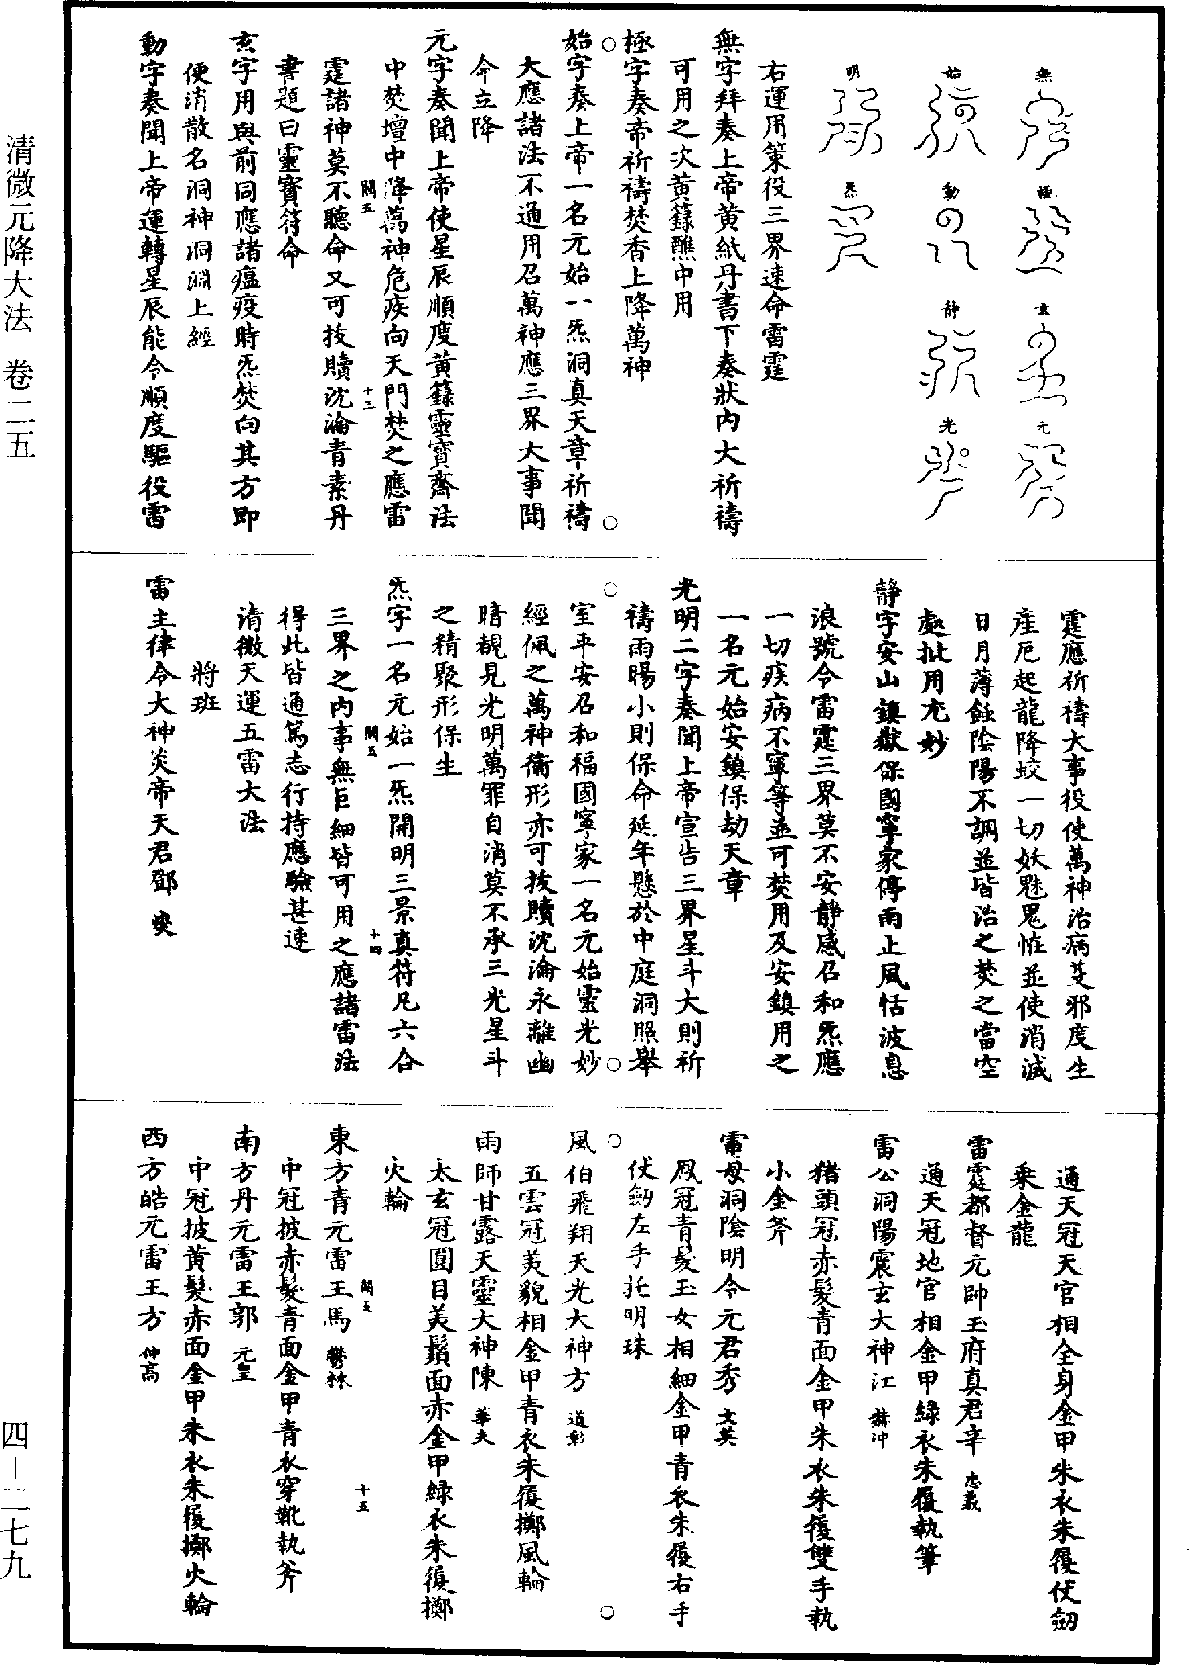 清微元降大法　卷二五
無　極　玄　元
始　動　靜　光
明　炁
右運用策役三界速命雷霆
無字拜奏上帝黃紙丹書下奏狀內大祈禱
可用之次黃籙醮中用
極字奏帝祈禱焚香上降萬神
始字奏上帝一名元始一炁洞真天章祈禱
大應諸法不通用召萬神應三界大事聞
令立降
元字奏聞上帝使星辰順度黃籙靈寶齋法
中焚壇中降萬神危疾向天門焚之應雷
關五　十三
霆諸神莫不聽命又可拔贖沈淪青素丹
書題曰靈寶符命
玄字用與前同應諸瘟疫時炁焚向其方即
便消散名洞神洞淵上經
動字奏聞上帝運轉星辰能令順度驅役雷
霆應祈禱大事役使萬神治病芟邪度生
產厄起龍降蛟一切妖魅鬼怪並使消滅
日月薄蝕陰陽不調並皆治之焚之當空
處批用尤妙
靜字安山鎮獄保國寧家停雨止風恬波息
浪號令雷霆三界莫不安靜感召和炁應
一切疾病不寧等並可焚用及安鎮用之
一名元始安鎮保劫天章
光明二字奏聞上帝宣告三界星斗大則祈
禱雨暘小則保命延年懸於中庭洞照舉
室平安召和福國寧家一名元始靈光妙
經佩之萬神衛形亦可拔贖沈淪永離幽
暗覩見光明萬罪自消莫不承三光星斗
之精聚形保生
炁字一名元始一炁開明三景真符凡六合
關五　十四
三界之內事無巨細皆可用之應諸雷法
得此皆通篤志行持應驗甚速
清微天運五雷大法
將班
雷主律令大神炎帝天君鄧　燮
通天冠天官相全身金甲朱衣朱履仗劒
乘金龍
雷霆都督元帥玉府真君辛　忠義
通天冠地官相金甲綠衣朱履執筆
雷公洞陽震玄大神江　赫冲
豬頭冠赤髮青面金甲朱衣朱履雙手執
小金斧
電母洞陰明令元君秀　文英
鳳冠青髮玉女相細金甲青衣朱履右手
伏劒左手托明珠
風伯飛翔天光大神方　道彰
五雲冠美貌相金甲青衣朱履擲風輪
雨師甘露天靈大神陳　華夫
太玄冠圓目美鬚面赤金甲綠衣朱履擲
火輪
關五　十五
東方青元雷王馬　鬱林
中冠披赤髮青面金甲青衣穿靴執斧
南方丹元雷王郭　元皇
中冠披黃髮赤面金甲朱衣朱履擲火輪
西方皓元雷王方　仲高
四—二七九